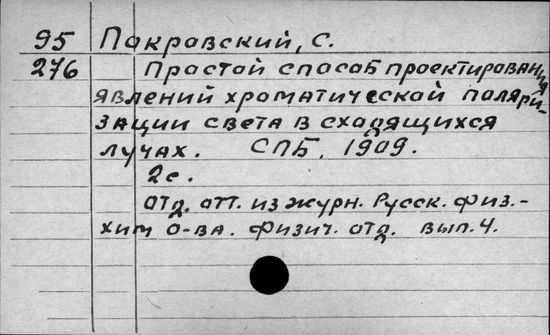 95 Покровский, С.
276 Простой способ проектирования
явлений хроматической поляри-
зации света в сходящихся
лучах. СПБ, 1909.
2с.
Отд. отт. из журн. Русск. физ.-
хим о-ва. Физич. отд. вып. 4.